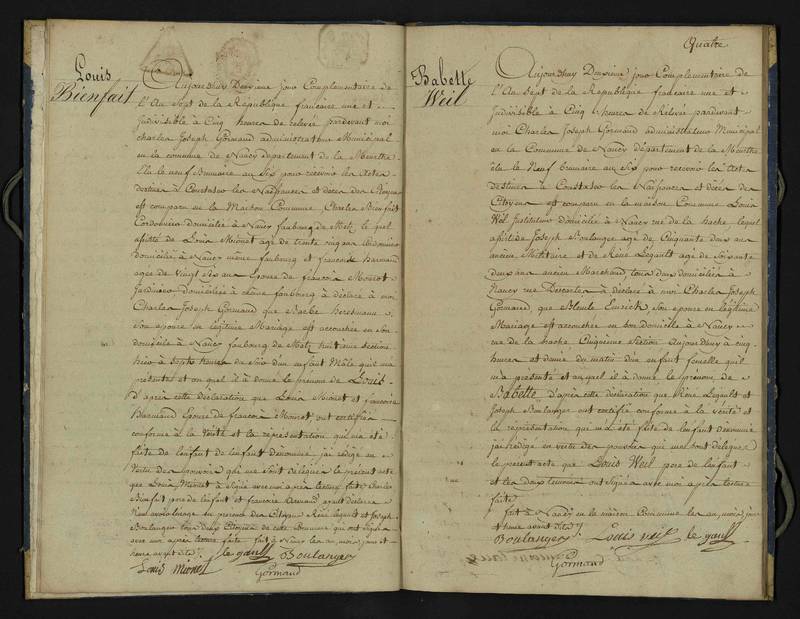 Louis
Bienfait
Aujourdhuy Deuxieme jour Complementaire de
l'An Sept de la Republique francaise une et
Indivisible à Cinq heures de relevée pardevant moi
charles Joseph Gormand administrateur Municipal
en la commune de Nancy departement de la Meurthe
Elu le neuf Brumaire an Six pour recevoir les Actes
destinés à Constater les Naissances et décès des Citoyens
est comparu en la Maison Commune, Charles Bienfait
Cordonnier domicilié à Nancy faubourg de Metz lequel
assisté de Louis Mionet agé de trente cinq ans
domicilié à Nancy même faubourg et françoise
agée de Vingt Six ans Epouse de francois Mourot
Jardinier domiciliée à faubourg à déclaré à moi
Charles Joseph Gormand que Barbe
Son epouse en légitime Mariage est accouchée en son
domicile à Nancy faubourg de Metz huitieme section
hier à Sept heures du Soir d'un enfant Mâle qu'il m'a
présenté et au quel il à donné le prénom de Louis.
D'après cette déclaration que Louis Mionet et francoise
Epouse de francois Mourot ont certifiée
conforme à la Vérité et la représentation qui m'a été
faite de l'enfant denommé, j'ai rédigé en
Vertu des pouvoirs qui me sont délégués le présent acte
que Louis Mionet à Signé avec moi après lecture faite Charles
Bienfait pere de l'enfant et francoise ayant déclaré
en presence des Citoyens René legault et Joseph
Boulanger tous deux Citoyens de cette Commune qui ont signés
avec moi après lecture faite. fait à Nancy les an, mois jour et
heure avant dits.
le gault Boulanger
Louis mionet
Gormand
Quatre
Babette
Weil
Aujourdhuy Deuxieme jour Complementaire de
l'An Sept de la Republique francaise une et
Indivisible à Cinq heures de Relevée pardevant
moi Charles Joseph Gormand administrateur Municipal
en la Commune de Nancy département de la Meurthe
élu le Neuf brumaire an Six pour recevoir les Actes
destinés à Constater les Naissances et décès des
Citoyens est comparu en la maison Commune Louis
Weil Instituteur domicilié à Nancy rue de la hache lequel
assisté de Joseph Boulanger agé de Cinquante deux ans
ancien Militaire et de René Legault agé de Soixante
deux ans ancien Marchand tous deux domiciliés à
Nancy rue Descartes à déclaré à moi Charles Joseph
Gormand que Son epouse en légitime
Mariage est accouchée en son domicile à Nancy
rue de la hache Cinquieme Section Aujourdhuy à cinq
heures et demie du matin d'un enfant femelle qu'il
m'a présenté et auquel il à donné le prénom de
Babette D'après cette déclaration que René Legault et
Joseph Boulanger ont certifiée conforme à la Vérité et
la représentation qui m'a été faite de l'enfant denommé
j'ai rédigé en vertu des pouvoirs qui me sont délégués
le présent acte que Louis Weil pere de l'enfant
et les deux temoins ont signés avec moi après lecture
faite
fait à Nancy en la maison Commune les an, mois jour
et heure avant dits
Boulanger Louis weil le gault
Gormand